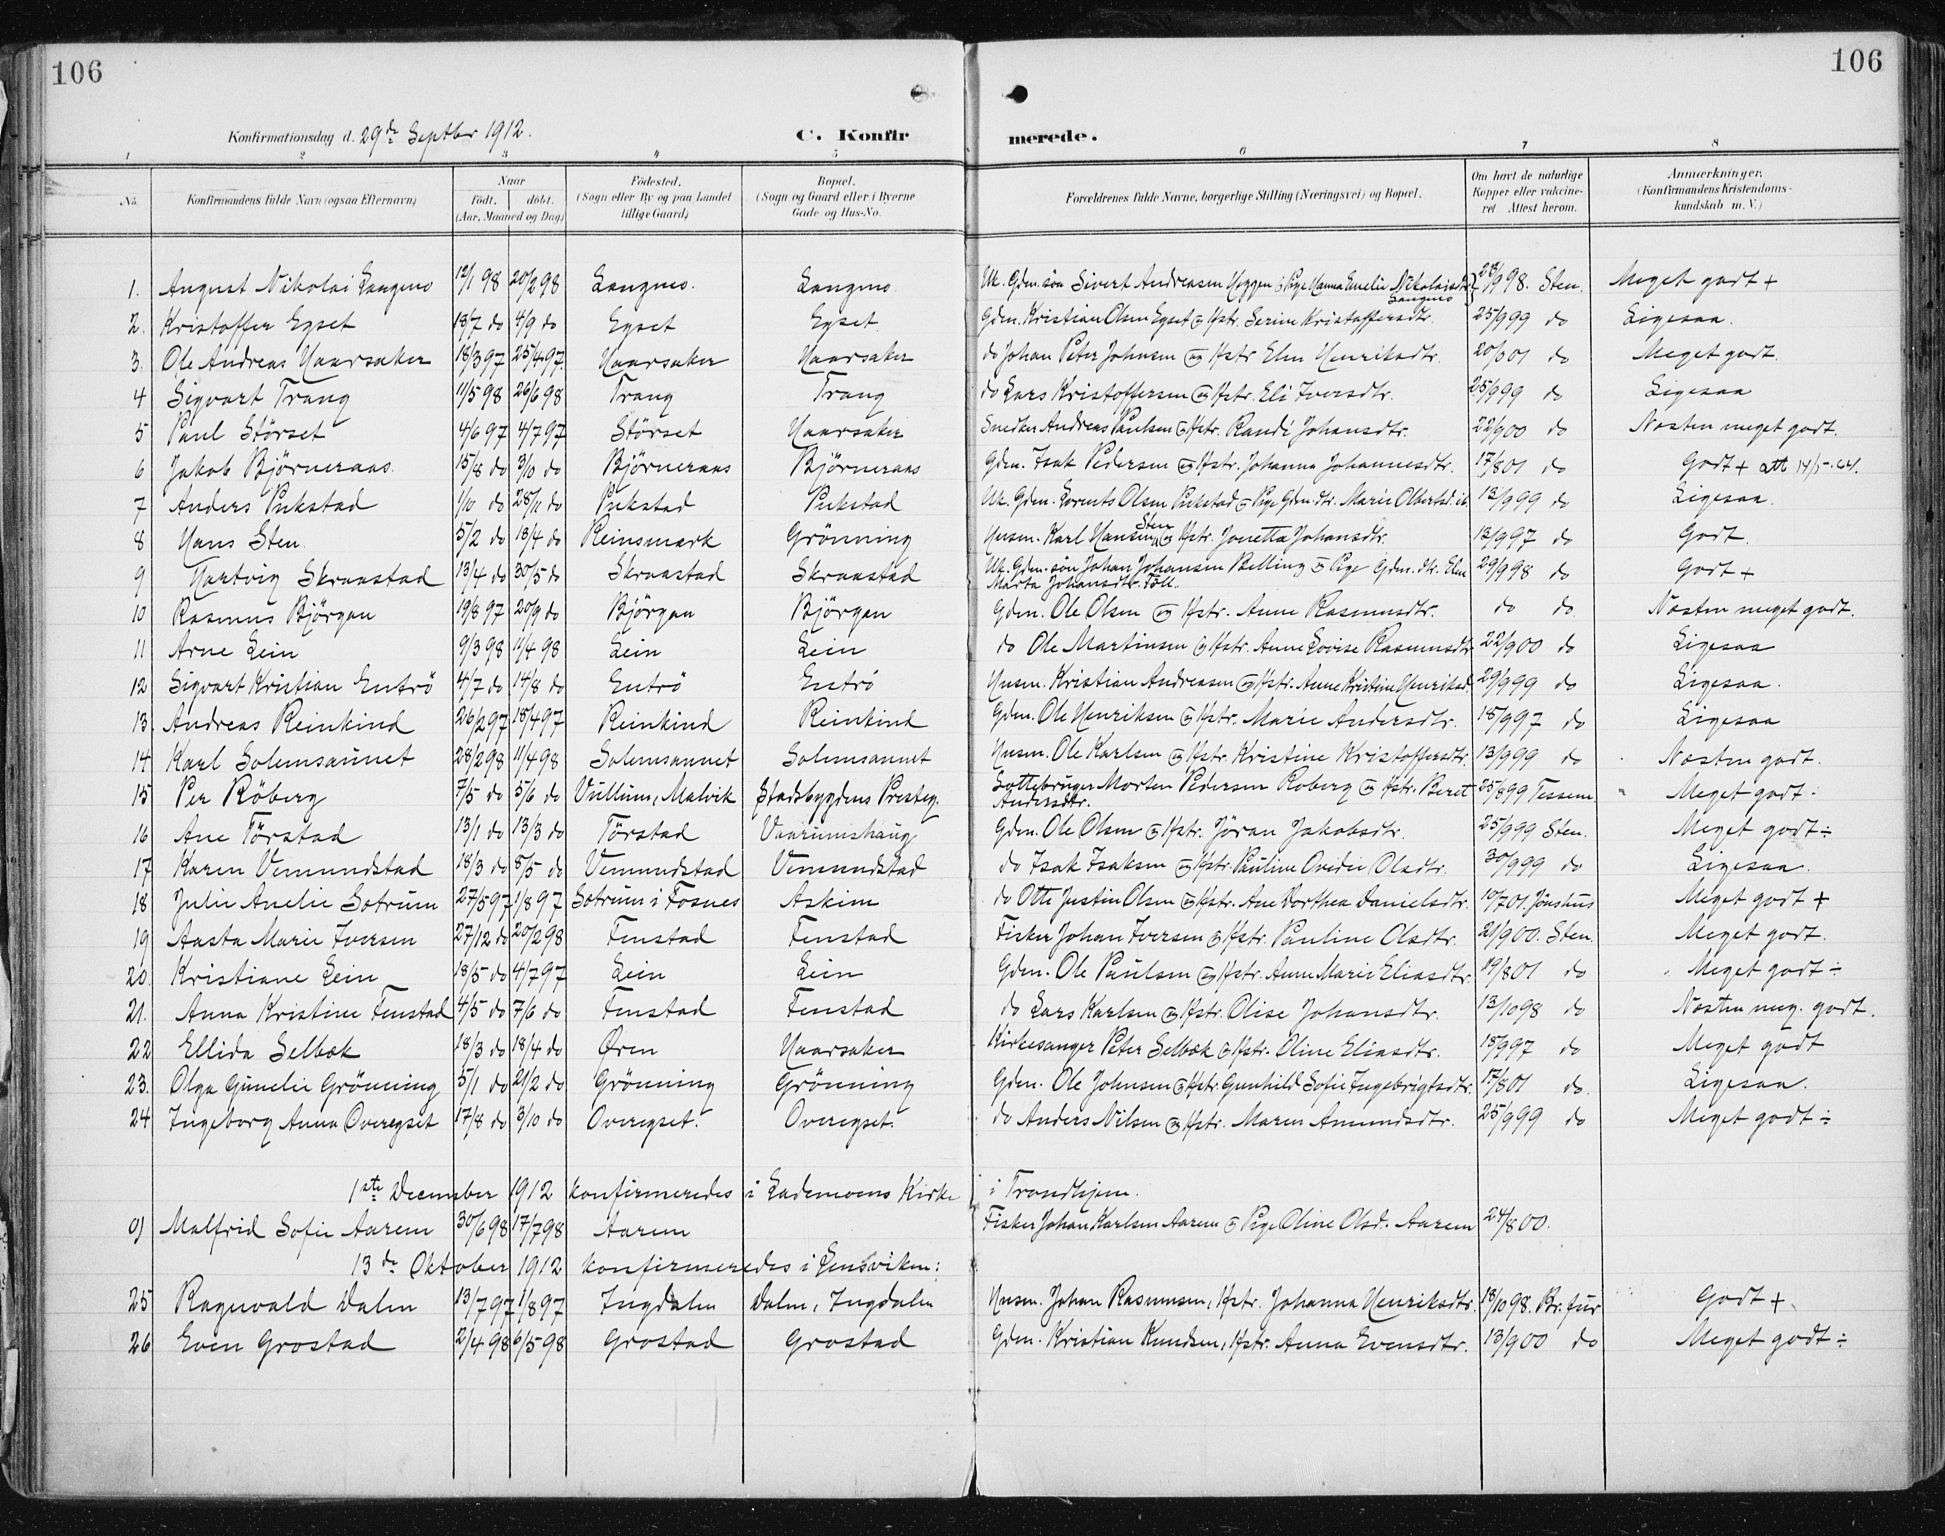 106
106
Konfirmationsdag d. 29de Septber 1912.
C. Konfir merede.
1 2 3 4 5 6 7 8
No. Konfirmandens fulde Navn (ogsaa Efternavn) Naar Født. døbt. (Aar, Maaned og Dag) Fødested. (Sogn eller By og paa Landet tillige Gaard) Bopæl. (Sogn og Gaard eller i Byerne Gade og Hus-No. Forældrenes fulde Navne, borgerlige Stilling (Næringsvei) og Bopæl. Om havt de naturlige Kopper eller vakcineret Attest herom. Anmærkninger. (Konfirmandens Kristendomskundskab m. V.)
1. August Nikolai Langmo 12/1 98 20/2 98 Langmo. Langmo. Uk. Gdm. søn Sivert Andreasen Heggen og Pige Hanna Emelie Nikolaisdtr. Langmo 23/9 98. Sten. Meget godt +
2. Kristoffer Egset 18/7 do 4/9 do Egset Egset. Gdm. Kristian Olsen Egset og Hstr. Serine Kristoffersdtr. 25/9 99 do Ligesaa.
3. Ole Andreas Haarsaker 18/3 97 25/4 97. Haarsaker Haarsaker do Johan Peter Johnsen og Hstr Elen Henriksdtr. 20/9 01 do Meget godt.
4 Sigvart Trang 11/5 98 26/6 98 Trang Trang do Lars Kristoffersen og Hstr. Eli Iversdtr. 25/9 99 do Ligesaa
5 Paul Störset 4/6 97 4/7 97 Störset Haarsaker Snedker Andreas Paulsen og Hstr. Randi Johansdtr. 22/9 00 do Næsten meget godt.
6 Jakob Björneraas. 15/8 do 3/10 do Björneraas Björneraas Gdm. Isak Pedersen og Hstr. Johanna Johannesdtr. 17/8 01 do Godt + Att 14/5-44.
7 Anders Pukstad 1/10 do 28/11 do Pukstad Pukstad Uk. Gdm. Lorents Olsen Pukstad og Pige Gdm. dtr. Marie Olbertsd. ib. 13/9 99 do Ligesaa.
8 Hans Sten. 5/2 do 18/4 do Reinsmark Grönning Husm. Karl Hansen Sten og Hstr. Jonetta Johansdtr. 13/9 97 do Godt.
9 Hartvig Skraastad 13/4 do 30/5 do Skraastad Skraastad Uk. Gdm. søn Johan Johansen Belling og Pige Gdm. dtr. Elen
Marta Johansdtr. Föll. 29/9 98 do Godt +
10 Rasmus Björgan 19/8 97 20/9 do Björgan Björgan Gdm. Ole Olsen og Hstr. Anne Rasmusdtr. do do Næsten meget godt.
11 Arne Lein 9/3 98 11/4 98 Lein Lein do Ole Martinsen og Hstr. Anne Lovise Rasmusdtr 22/9 00 do Ligesaa
12 Sigvart Kristian Entrö 4/7 do 14/8 do Entrö Entrö Husm. Kristian Andreasen og Hstr. Anne Kristine Henriksd. 29/9 99 do Ligesaa.
13. Andreas Reinkind 26/2 97 18/4 97 Reinkind Reinkind Gdm. Ole Henriksen og Hstr. Marie Andersdtr. 18/9 97 do Ligesaa
14 Karl Solemsaunet 28/2 98 11/4 98 Solemsaunet Solemsaunet Husm. Ole Karlsen og Hstr. Kristine Kristoffersdtr. 13/9 99 do Næsten godt.
15 Per Röberg 7/5 do 5/6 do Vullum, Malvik Stadsbygdens Presteg. Lottebruger Morten Pedersen Roberg og Hstr. Beret
Andersdtr. 25/8 99 Tessem. Meget godt.
16 Ane Törstad 13/1 do 13/3 do Törstad Vaarumshaug Gdm. Ole Olsen og Hstr. Jöran Jakobsdtr. 25/9 99 Sten. Meget godt÷
17 Karen Vemundstad 18/3 do 8/5 do Vemundstad Vemundstad do Isak Isaksen og Hstr. Pauline Ovedie Olsdtr. 30/9 99 do Ligesaa.
18 Julie Amelie Sötrum 27/5 97 1/8 97 Sötrum i Fosnes Askim do Otto Justin Olsen og Hstr. Ane Dorthea Danielsdtr. 10/7 01. Jönshus Meget godt +
19 Aasta Marie Iversen 27/12 do 20/2 98 Fenstad Fenstad Fisker Johan Iversen og Hstr. Pauline Olsdtr. 21/9 00. Sten. Meget godt.
20. Kristiane Lein 18/5 do 4/7 97 Lein Lein Gdm. Ole Paulsen og Hstr. Anne Marie Eliasdtr. 19/8 01 do Meget godt ÷
21. Anna Kristine Fenstad 4/5 do 7/6 do Fenstad Fenstad do Lars Karlsen og Hstr. Olise Johansdtr. 13/10 98 do Næsten meg. godt.
22 Ellida Selbæk 18/3 do 18/4 do Øren Haarsaker Kirkesanger Peter Selbæk og Hstr. Oline Eliasdtr. 18/9 97 do Meget godt
23. Olga Gunelie Grönning 5/1 do 21/2 do Grönning Grönning Gdm. Ole Johnsen og Hstr. Gunhild Sofie Ingebrigtsdtr. 17/8 01 do. Ligesaa.
24 Ingeborg Anna Overegset 17/8 do 3/10 do Overegset. Overegset. do Anders Nilsen og Hstr. Maren Amundsdtr. 25/9 99 do Meget godt÷
1ste December 1912 konfirmeredes i Lademoens Kirke i Trondhjem.
0) Malfrid Sofie Aarem 30/6 98 17/7 98 Aarem Fisker Johan Karlsen Aarem og Pige Oline Olsd. Aarem 24/8 00.
13de Oktober 1912 konfirmeredes i Lensviken:
25 Ragnvald Dalen 13/7 97 1/8 97 Ingdalen Dalen, Ingdalen Husm. Johan Rasmusen, Hstr. Johanna Henriksdtr. 18/10 98. Br.fur Godt +
26 Even Grostad 2/4 98 6/5 98 Grostad Grostad Gdm. Kristian Knudsen, Hstr. Anna Evensdtr. 13/9 00 do Meget godt÷